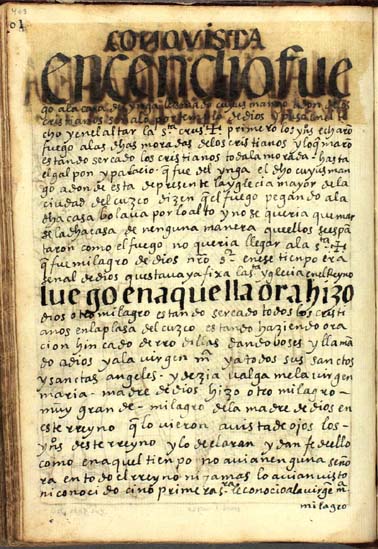 CONQVISTA
encendio fue
go a la casa del ynga llamado cuyus mango a don de los
cristianos señalo por templo de dios y puso en el te
cho y en el altar la sta crus primero los ynos echaro
fuego a las dhas moradas de los cristianos y lo quemaro
estando sercado los cristianos toda la morada hasta
el galpon y palacio q fue del ynga el dho cuyus man
go a don de esta de presente la yglecia mayor de la
ciudad del cuzco dizen q el fuego pegando a la
dha casa bolaua por lo alto y no se queria quemar
se la dha casa de nenguna manera que ellos se espan
taron como el fuego no queria llegar a la sta
q fue milagro de dios nro sr en ese tienpo era
señal de dios q estaua ya fixa la sta yglecia en el rreyno
luego en aquella ora hizo
dios otro milagro estando sercado todos los cristi
anos en la plasa del cuzco estando haziendo ora
cion hincado de rrodillas dando boses y llama
do a dios y a la uirgen ma y a todos sus sanctos
y sanctas angeles y dezia ualga me la uirgen
maria madre de dios hizo otro milagro
muy grande milagro de la madre de dios en
este rreyno q lo uieron a uista de ojos los
yns deste rreyno y lo declaran y dan fe dello
como en aquel tienpo no auia nenguna seño
ra en todo el rreyno ni jamas lo auian uisto
ni conocido cino primera sra le conocio a la uirge ma
milagro